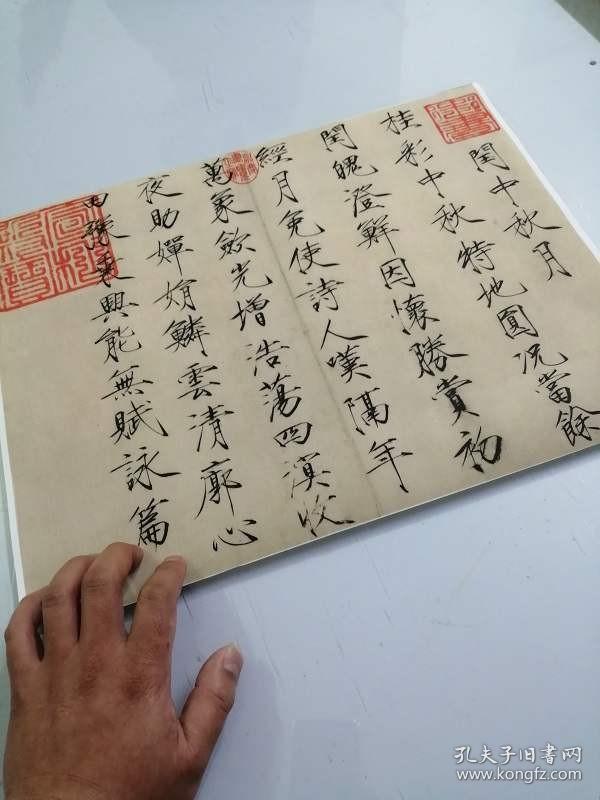 閏中秋月
桂彩中秋特地圓況當餘
閏魄澄鮮因懷勝賞初
經月免使詩人嘆隔年
萬象歛光增浩蕩四溟收
夜助嬋娟鱗雲清廓心
田豫乘興能無賦詠篇
孔夫子旧書网
www.kongfz.com